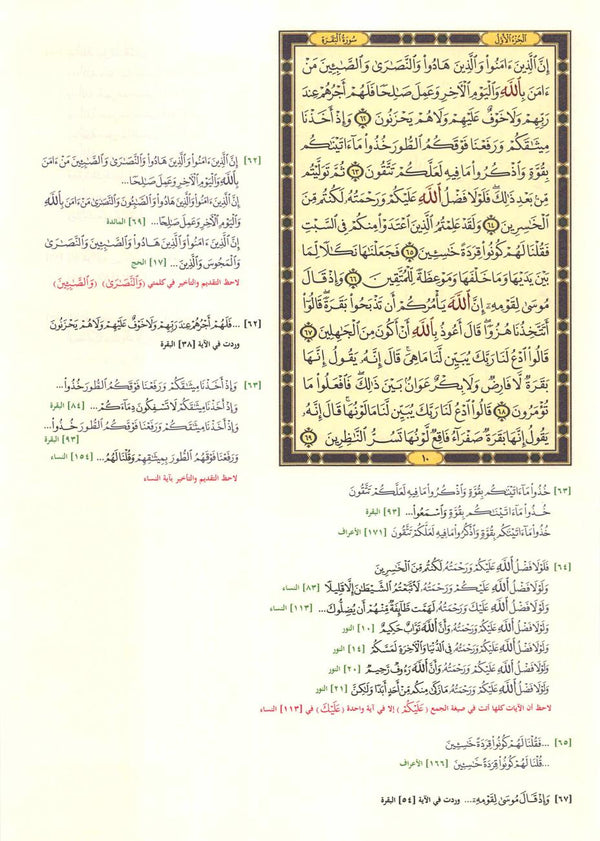 الجزء الأول
سورة البقرة
إِنَّ الَّذِينَ ءَامَنُوا وَالَّذِينَ هَادُوا وَالنَّصَٰرَىٰ وَالصَّٰبِـِٔينَ مَنْ
ءَامَنَ بِاللَّهِ وَالْيَوْمِ الْءَاخِرِ وَعَمِلَ صَٰلِحًا فَلَهُمْ أَجْرُهُمْ عِندَ
رَبِّهِمْ وَلَا خَوْفٌ عَلَيْهِمْ وَلَا هُمْ يَحْزَنُونَ ٦٢ وَإِذْ أَخَذْنَا
مِيثَٰقَكُمْ وَرَفَعْنَا فَوْقَكُمُ الطُّورَ خُذُوا مَا ءَاتَيْنَٰكُم
بِقُوَّةٍ وَاذْكُرُوا مَا فِيهِ لَعَلَّكُمْ تَتَّقُونَ ٦٣ ثُمَّ تَوَلَّيْتُم
مِّنۢ بَعْدِ ذَٰلِكَ ۖ فَلَوْلَا فَضْلُ اللَّهِ عَلَيْكُمْ وَرَحْمَتُهُۥ لَكُنتُم مِّنَ
الْخَٰسِرِينَ ٦٤ وَلَقَدْ عَلِمْتُمُ الَّذِينَ اعْتَدَوْا مِنكُمْ فِي السَّبْتِ
فَقُلْنَا لَهُمْ كُونُوا قِرَدَةً خَٰسِـِٔينَ ٦٥ فَجَعَلْنَٰهَا نَكَٰلًا لِّمَا
بَيْنَ يَدَيْهَا وَمَا خَلْفَهَا وَمَوْعِظَةً لِّلْمُتَّقِينَ ٦٦ وَإِذْ قَالَ
مُوسَىٰ لِقَوْمِهِۦٓ إِنَّ اللَّهَ يَأْمُرُكُمْ أَن تَذْبَحُوا بَقَرَةً ۖ قَالُوٓا
أَتَتَّخِذُنَا هُزُوًا ۖ قَالَ أَعُوذُ بِاللَّهِ أَنْ أَكُونَ مِنَ الْجَٰهِلِينَ ٦٧
قَالُوا ادْعُ لَنَا رَبَّكَ يُبَيِّن لَّنَا مَا هِيَ ۚ قَالَ إِنَّهُۥ يَقُولُ إِنَّهَا
بَقَرَةٌ لَّا فَارِضٌ وَلَا بِكْرٌ عَوَانٌۢ بَيْنَ ذَٰلِكَ ۖ فَافْعَلُوا مَا
تُؤْمَرُونَ ٦٨ قَالُوا ادْعُ لَنَا رَبَّكَ يُبَيِّن لَّنَا مَا لَوْنُهَا ۚ قَالَ إِنَّهُۥ
يَقُولُ إِنَّهَا بَقَرَةٌ صَفْرَآءُ فَاقِعٌ لَّوْنُهَا تَسُرُّ النَّٰظِرِينَ ٦٩
١٠
[٦٢] إِنَّ الَّذِينَ ءَامَنُوا وَالَّذِينَ هَادُوا وَالنَّصَٰرَىٰ وَالصَّٰبِـِٔينَ مَنْ ءَامَنَ
بِاللَّهِ وَالْيَوْمِ الْءَاخِرِ وَعَمِلَ صَٰلِحًا...
إِنَّ الَّذِينَ ءَامَنُوا وَالَّذِينَ هَادُوا وَالصَّٰبِـُٔونَ وَالنَّصَٰرَىٰ مَنْ ءَامَنَ بِاللَّهِ
وَالْيَوْمِ الْءَاخِرِ وَعَمِلَ صَٰلِحًا... [٦٩] المائدة
إِنَّ الَّذِينَ ءَامَنُوا وَالَّذِينَ هَادُوا وَالصَّٰبِـِٔينَ وَالنَّصَٰرَىٰ
وَالْمَجُوسَ وَالَّذِينَ... [١٧] الحج
لاحظ التقديم والتأخير في كلمتي (وَالنَّصَٰرَىٰ) (وَالصَّٰبِـِٔينَ)
[٦٢] ...فَلَهُمْ أَجْرُهُمْ عِندَ رَبِّهِمْ وَلَا خَوْفٌ عَلَيْهِمْ وَلَا هُمْ يَحْزَنُونَ
وردت في الآية [٣٨] البقرة
[٦٣] وَإِذْ أَخَذْنَا مِيثَٰقَكُمْ وَرَفَعْنَا فَوْقَكُمُ الطُّورَ خُذُوا...
وَإِذْ أَخَذْنَا مِيثَٰقَكُمْ لَا تَسْفِكُونَ دِمَآءَكُمْ... [٨٤] البقرة
وَإِذْ أَخَذْنَا مِيثَٰقَكُمْ وَرَفَعْنَا فَوْقَكُمُ الطُّورَ خُذُوا...
[٩٣] البقرة
وَرَفَعْنَا فَوْقَهُمُ الطُّورَ بِمِيثَٰقِهِمْ وَقُلْنَا لَهُمُ... [١٥٤] النساء
لاحظ التقديم والتأخير بآية النساء
[٦٣] خُذُوا مَا ءَاتَيْنَٰكُم بِقُوَّةٍ وَاذْكُرُوا مَا فِيهِ لَعَلَّكُمْ تَتَّقُونَ
خُذُوا مَا ءَاتَيْنَٰكُم بِقُوَّةٍ وَاسْمَعُوا... [٩٣] البقرة
خُذُوا مَا ءَاتَيْنَٰكُم بِقُوَّةٍ وَاذْكُرُوا مَا فِيهِ لَعَلَّكُمْ تَتَّقُونَ [١٧١] الأعراف
[٦٤] فَلَوْلَا فَضْلُ اللَّهِ عَلَيْكُمْ وَرَحْمَتُهُۥ لَكُنتُم مِّنَ الْخَٰسِرِينَ
وَلَوْلَا فَضْلُ اللَّهِ عَلَيْكُمْ وَرَحْمَتُهُۥ لَاتَّبَعْتُمُ الشَّيْطَٰنَ إِلَّا قَلِيلًا [٨٣] النساء
وَلَوْلَا فَضْلُ اللَّهِ عَلَيْكَ وَرَحْمَتُهُۥ لَهَمَّت طَّآئِفَةٌ مِّنْهُمْ أَن يُضِلُّوكَ... [١١٣] النساء
وَلَوْلَا فَضْلُ اللَّهِ عَلَيْكُمْ وَرَحْمَتُهُۥ وَأَنَّ اللَّهَ تَوَّابٌ حَكِيمٌ [١٠] النور
وَلَوْلَا فَضْلُ اللَّهِ عَلَيْكُمْ وَرَحْمَتُهُۥ فِي الدُّنْيَا وَالْءَاخِرَةِ لَمَسَّكُمْ [١٤] النور
وَلَوْلَا فَضْلُ اللَّهِ عَلَيْكُمْ وَرَحْمَتُهُۥ وَأَنَّ اللَّهَ رَءُوفٌ رَّحِيمٌ [٢٠] النور
وَلَوْلَا فَضْلُ اللَّهِ عَلَيْكُمْ وَرَحْمَتُهُۥ مَا زَكَىٰ مِنكُم مِّنْ أَحَدٍ أَبَدًا وَلَٰكِنَّ [٢١] النور
لاحظ أن الآيات كلها أتت في صيغة الجمع (عَلَيْكُمْ) إلا في آية واحدة (عَلَيْكَ) في [١١٣] النساء
[٦٥] ...فَقُلْنَا لَهُمْ كُونُوا قِرَدَةً خَٰسِـِٔينَ
...قُلْنَا لَهُمْ كُونُوا قِرَدَةً خَٰسِـِٔينَ [١٦٦] الأعراف
[٦٧] وَإِذْ قَالَ مُوسَىٰ لِقَوْمِهِۦ... وردت في الآية [٥٤] البقرة